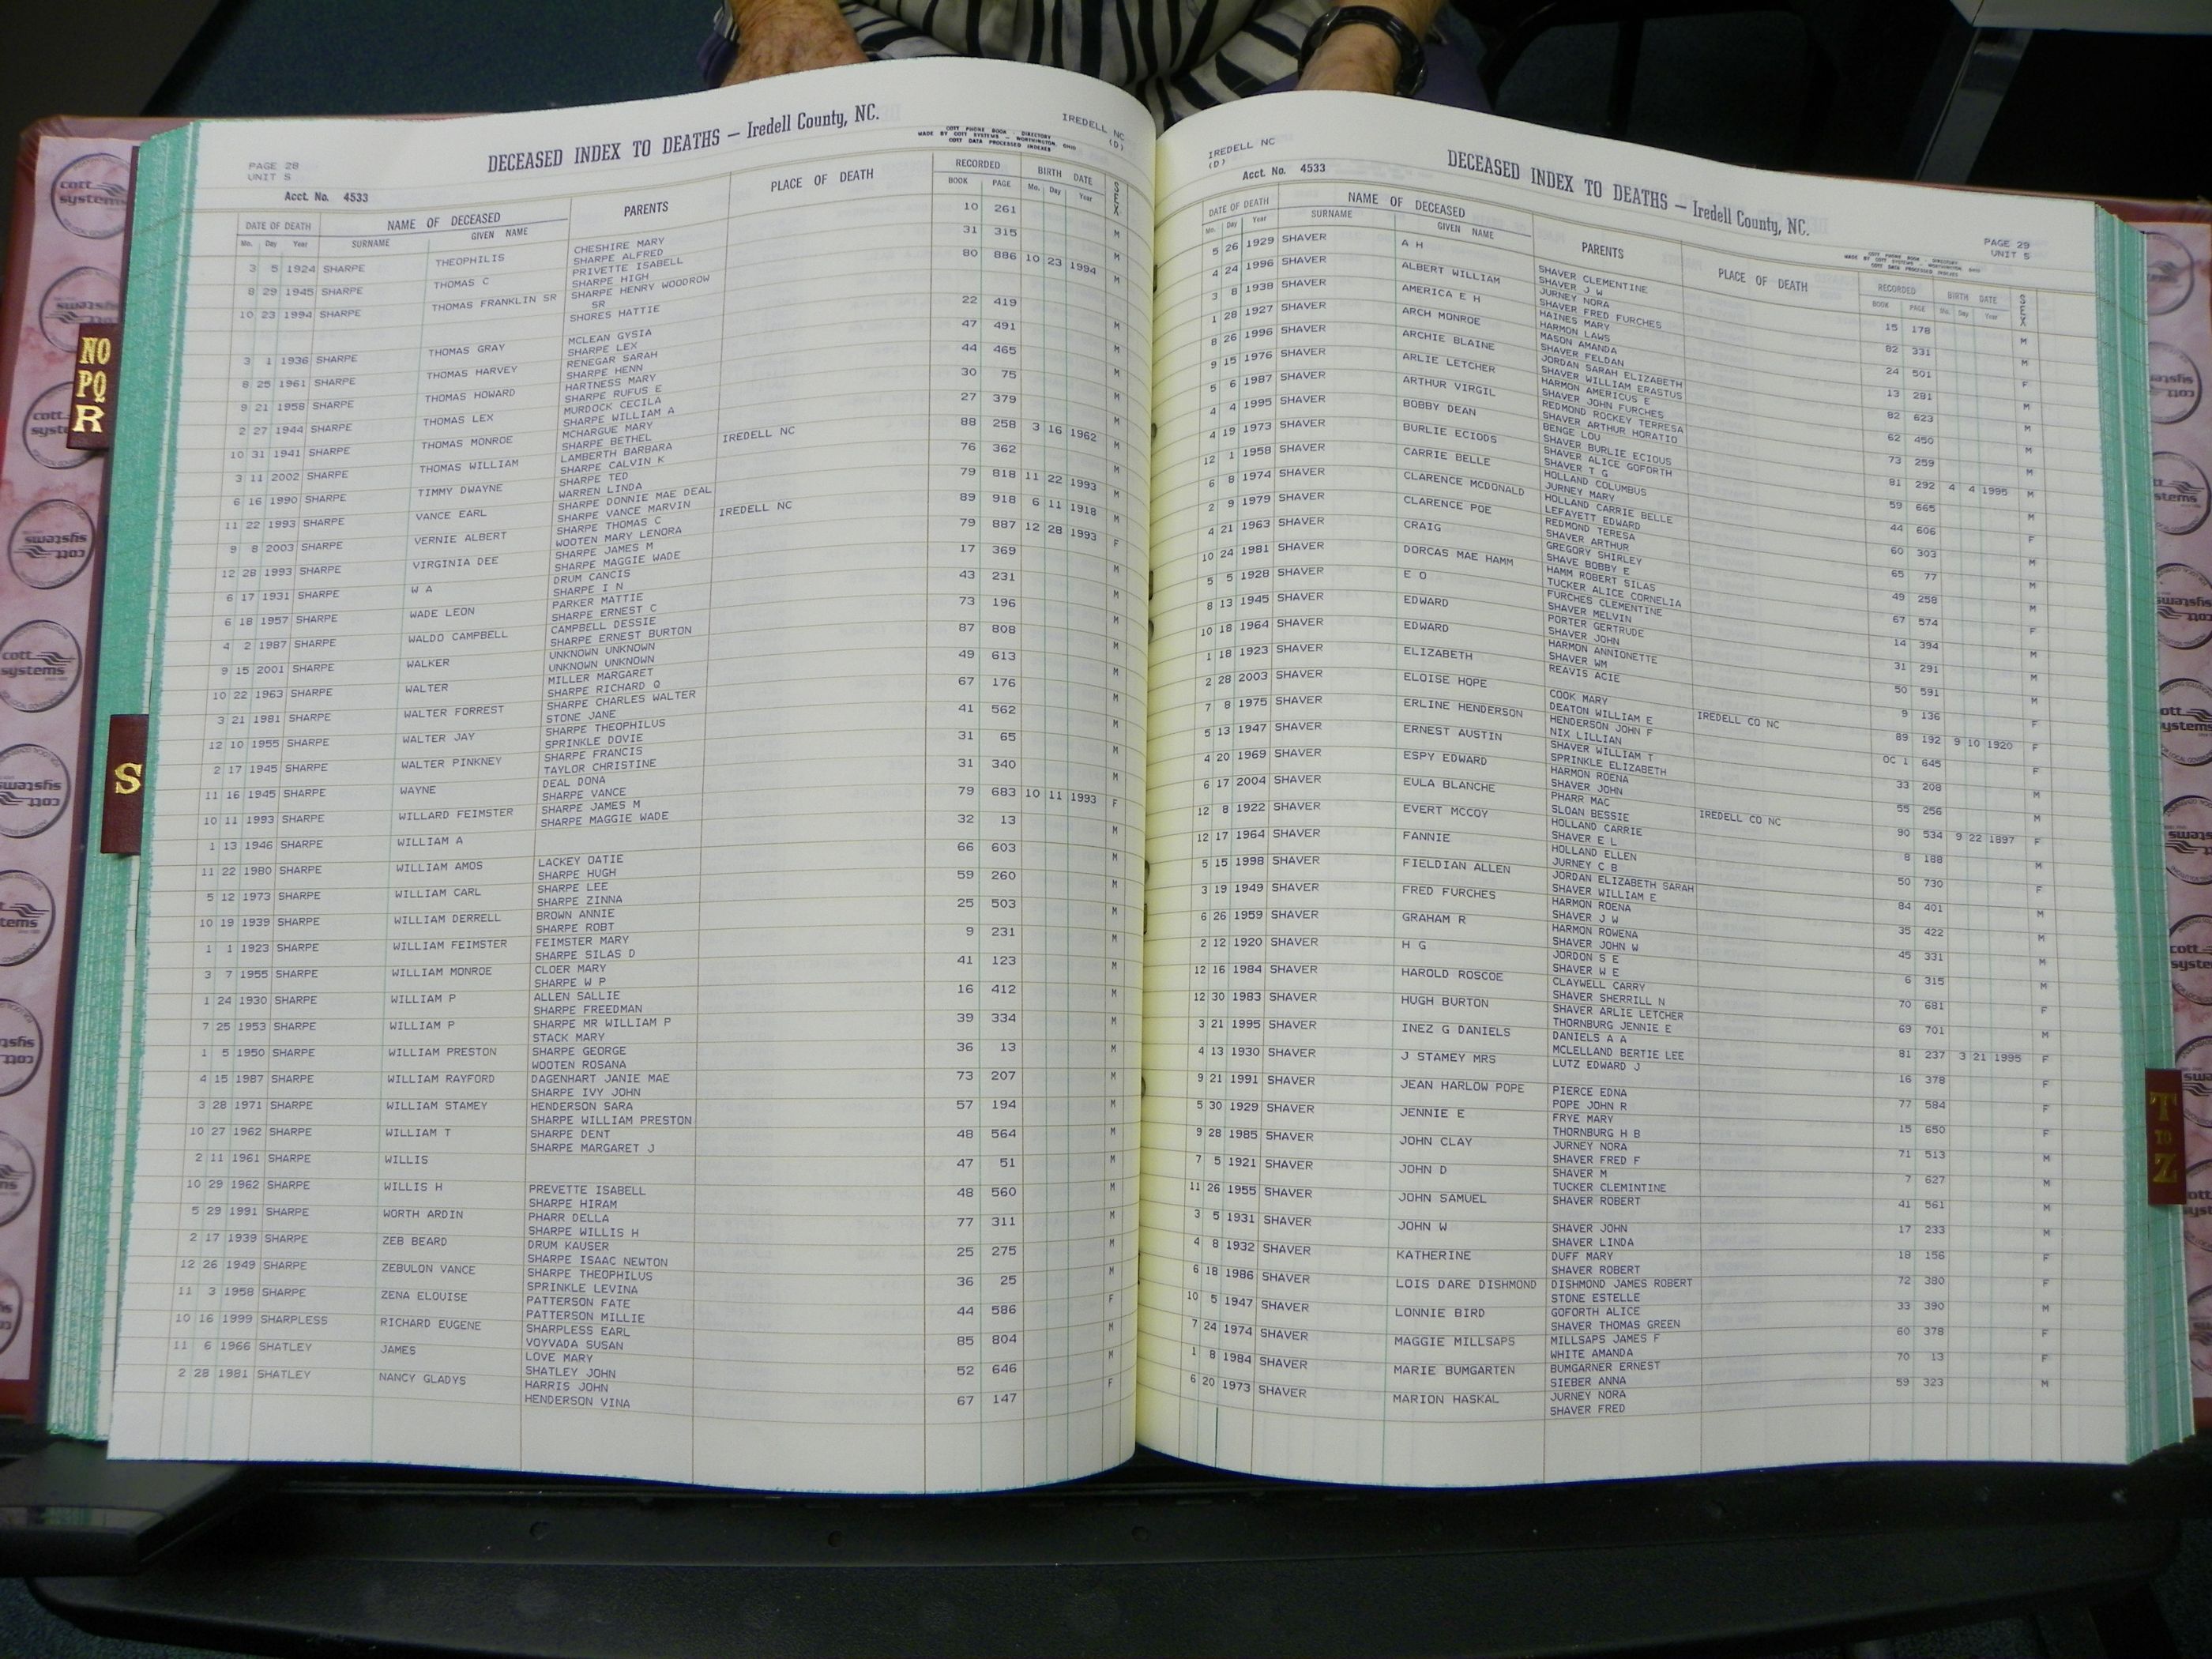 DECEASED INDEX TO DEATHS — Iredell County, NC.
IREDELL NC
(D)
COTT PHONE BOOK - DIRECTORY
MADE BY COTT SYSTEMS - WORTHINGTON, OHIO
COTT DATA PROCESSED INDEXES
PAGE 28
UNIT S
Acct. No. 4533
DATE OF DEATH NAME OF DECEASED PARENTS PLACE OF DEATH RECORDED BIRTH DATE SEX
Mo. Day Year SURNAME GIVEN NAME BOOK PAGE Mo. Day Year
3 5 1924 SHARPE THEOPHILIS CHESHIRE MARY 10 261 M
SHARPE ALFRED
8 29 1945 SHARPE THOMAS C PRIVETTE ISABELL 31 315 M
SHARPE HIGH
10 23 1994 SHARPE THOMAS FRANKLIN SR SHARPE HENRY WOODROW 80 886 10 23 1994 M
SR
SHORES HATTIE
3 1 1936 SHARPE THOMAS GRAY MCLEAN GYSIA 22 419 M
SHARPE LEX
8 25 1961 SHARPE THOMAS HARVEY RENEGAR SARAH 47 491 M
SHARPE HENN
9 21 1958 SHARPE THOMAS HOWARD HARTNESS MARY 44 465 M
SHARPE RUFUS E
2 27 1944 SHARPE THOMAS LEX MURDOCK CECILA 30 75 M
SHARPE WILLIAM A
10 31 1941 SHARPE THOMAS MONROE MCHARGUE MARY 27 379 M
SHARPE BETHEL
3 11 2002 SHARPE THOMAS WILLIAM LAMBERTH BARBARA IREDELL NC 88 258 3 16 1962 M
SHARPE CALVIN K
6 16 1990 SHARPE TIMMY DWAYNE SHARPE TED 76 362 M
WARREN LINDA
11 22 1993 SHARPE VANCE EARL SHARPE DONNIE MAE DEAL 79 818 11 22 1993 M
SHARPE VANCE MARVIN
9 8 2003 SHARPE VERNIE ALBERT SHARPE THOMAS C IREDELL NC 89 918 6 11 1918 M
WOOTEN MARY LENORA
12 28 1993 SHARPE VIRGINIA DEE SHARPE JAMES M 79 887 12 28 1993 F
SHARPE MAGGIE WADE
6 17 1931 SHARPE W A DRUM CANCIS 17 369 M
SHARPE I N
6 18 1957 SHARPE WADE LEON PARKER MATTIE 43 231 M
SHARPE ERNEST C
4 2 1987 SHARPE WALDO CAMPBELL CAMPBELL DESSIE 73 196 M
SHARPE ERNEST BURTON
9 15 2001 SHARPE WALKER UNKNOWN UNKNOWN 87 808 M
UNKNOWN UNKNOWN
10 22 1963 SHARPE WALTER MILLER MARGARET 49 613 M
SHARPE RICHARD Q
3 21 1981 SHARPE WALTER FORREST SHARPE CHARLES WALTER 67 176 M
STONE JANE
12 10 1955 SHARPE WALTER JAY SHARPE THEOPHILUS 41 562 M
SPRINKLE DOVIE
2 17 1945 SHARPE WALTER PINKNEY SHARPE FRANCIS 31 65 M
TAYLOR CHRISTINE
11 16 1945 SHARPE WAYNE DEAL DONA 31 340 M
SHARPE VANCE
10 11 1993 SHARPE WILLARD FEIMSTER SHARPE JAMES M 79 683 10 11 1993 F
SHARPE MAGGIE WADE
1 13 1946 SHARPE WILLIAM A 32 13 M
11 22 1980 SHARPE WILLIAM AMOS LACKEY OATIE 66 603 M
SHARPE HUGH
5 12 1973 SHARPE WILLIAM CARL SHARPE LEE 59 260 M
SHARPE ZINNA
10 19 1939 SHARPE WILLIAM DERRELL BROWN ANNIE 25 503 M
SHARPE ROBT
1 1 1923 SHARPE WILLIAM FEIMSTER FEIMSTER MARY 9 231 M
SHARPE SILAS D
3 7 1955 SHARPE WILLIAM MONROE CLOER MARY 41 123 M
SHARPE W P
1 24 1930 SHARPE WILLIAM P ALLEN SALLIE 16 412 M
SHARPE FREEDMAN
7 25 1953 SHARPE WILLIAM P SHARPE MR WILLIAM P 39 334 M
STACK MARY
1 5 1950 SHARPE WILLIAM PRESTON SHARPE GEORGE 36 13 M
WOOTEN ROSANA
4 15 1987 SHARPE WILLIAM RAYFORD DAGENHART JANIE MAE 73 207 M
SHARPE IVY JOHN
3 28 1971 SHARPE WILLIAM STAMEY HENDERSON SARA 57 194 M
SHARPE WILLIAM PRESTON
10 27 1962 SHARPE WILLIAM T SHARPE DENT 48 564 M
SHARPE MARGARET J
2 11 1961 SHARPE WILLIS 47 51 M
10 29 1962 SHARPE WILLIS H PREVETTE ISABELL 48 560 M
SHARPE HIRAM
5 29 1991 SHARPE WORTH ARDIN PHARR DELLA 77 311 M
SHARPE WILLIS H
2 17 1939 SHARPE ZEB BEARD DRUM KAUSER 25 275 M
SHARPE ISAAC NEWTON
12 26 1949 SHARPE ZEBULON VANCE SHARPE THEOPHILUS 36 25 M
SPRINKLE LEVINA
11 3 1958 SHARPE ZENA ELOUISE PATTERSON FATE 44 586 F
PATTERSON MILLIE
10 16 1999 SHARPLESS RICHARD EUGENE SHARPLESS EARL 85 804 M
VOYVADA SUSAN
11 6 1966 SHATLEY JAMES LOVE MARY 52 646 M
SHATLEY JOHN
2 28 1981 SHATLEY NANCY GLADYS HARRIS JOHN 67 147 F
HENDERSON VINA
IREDELL NC
(D)
Acct. No. 4533
DECEASED INDEX TO DEATHS — Iredell County, NC.
PAGE 29
UNIT S
DATE OF DEATH NAME OF DECEASED PARENTS PLACE OF DEATH RECORDED BIRTH DATE SEX
Mo. Day Year SURNAME GIVEN NAME BOOK PAGE Mo. Day Year
5 26 1929 SHAVER A H SHAVER CLEMENTINE 15 178 M
SHAVER J W
4 24 1996 SHAVER ALBERT WILLIAM JURNEY NORA 82 331 M
SHAVER FRED FURCHES
3 8 1938 SHAVER AMERICA E H HAINES MARY 24 501 F
HARMON LAWS
1 28 1927 SHAVER ARCH MONROE MASON AMANDA 13 281 M
SHAVER FELDAN
8 26 1996 SHAVER ARCHIE BLAINE JORDAN SARAH ELIZABETH 82 623 M
SHAVER WILLIAM ERASTUS
9 15 1976 SHAVER ARLIE LETCHER HARMON AMERICUS E 62 450 M
SHAVER JOHN FURCHES
5 6 1987 SHAVER ARTHUR VIRGIL REDMOND ROCKEY TERRESA 73 259 M
SHAVER ARTHUR HORATIO
4 4 1995 SHAVER BOBBY DEAN BENGE LOU 81 292 4 4 1995 M
SHAVER BURLIE ECIOUS
4 19 1973 SHAVER BURLIE ECIODS SHAVER ALICE GOFORTH 59 665 M
SHAVER T G
12 1 1958 SHAVER CARRIE BELLE HOLLAND COLUMBUS 44 606 F
JURNEY MARY
6 8 1974 SHAVER CLARENCE MCDONALD HOLLAND CARRIE BELLE 60 303 M
LEFAYETT EDWARD
2 9 1979 SHAVER CLARENCE POE REDMOND TERESA 65 77 M
SHAVER ARTHUR
4 21 1963 SHAVER CRAIG GREGORY SHIRLEY 49 258 M
SHAVE BOBBY E
10 24 1981 SHAVER DORCAS MAE HAMM HAMM ROBERT SILAS 67 574 F
TUCKER ALICE CORNELIA
5 5 1928 SHAVER E O FURCHES CLEMENTINE 14 394 M
SHAVER MELVIN
8 13 1945 SHAVER EDWARD PORTER GERTRUDE 31 291 M
SHAVER JOHN
10 18 1964 SHAVER EDWARD HARMON ANNIONETTE 50 591 M
SHAVER WM
1 18 1923 SHAVER ELIZABETH REAVIS ACIE 9 136 F
2 28 2003 SHAVER ELOISE HOPE COOK MARY IREDELL CO NC 89 192 9 10 1920 F
DEATON WILLIAM E
7 8 1975 SHAVER ERLINE HENDERSON HENDERSON JOHN F OC 1 645 F
NIX LILLIAN
5 13 1947 SHAVER ERNEST AUSTIN SHAVER WILLIAM T 33 208 M
SPRINKLE ELIZABETH
4 20 1969 SHAVER ESPY EDWARD HARMON ROENA 55 256 M
SHAVER JOHN
6 17 2004 SHAVER EULA BLANCHE PHARR MAC IREDELL CO NC 90 534 9 22 1897 F
SLOAN BESSIE
12 8 1922 SHAVER EVERT MCCOY HOLLAND CARRIE 8 188 M
SHAVER E L
12 17 1964 SHAVER FANNIE HOLLAND ELLEN 50 730 F
JURNEY C B
5 15 1998 SHAVER FIELDIAN ALLEN JORDAN ELIZABETH SARAH 84 401 M
SHAVER WILLIAM E
3 19 1949 SHAVER FRED FURCHES HARMON ROENA 35 422 M
SHAVER J W
6 26 1959 SHAVER GRAHAM R HARMON ROWENA 45 331 M
SHAVER JOHN W
2 12 1920 SHAVER H G JORDON S E 6 315 M
SHAVER W E
12 16 1984 SHAVER HAROLD ROSCOE CLAYWELL CARRY 70 681 F
SHAVER SHERRILL N
12 30 1983 SHAVER HUGH BURTON SHAVER ARLIE LETCHER 69 701 M
THORNBURG JENNIE E
3 21 1995 SHAVER INEZ G DANIELS DANIELS A A 81 237 3 21 1995 F
MCLELLAND BERTIE LEE
4 13 1930 SHAVER J STAMEY MRS LUTZ EDWARD J 16 378 F
9 21 1991 SHAVER JEAN HARLOW POPE PIERCE EDNA 77 584 F
POPE JOHN R
5 30 1929 SHAVER JENNIE E FRYE MARY 15 650 F
THORNBURG H B
9 28 1985 SHAVER JOHN CLAY JURNEY NORA 71 513 M
SHAVER FRED F
7 5 1921 SHAVER JOHN D SHAVER M 7 627 M
TUCKER CLEMINTINE
11 26 1955 SHAVER JOHN SAMUEL SHAVER ROBERT 41 561 M
3 5 1931 SHAVER JOHN W SHAVER JOHN 17 233 M
SHAVER LINDA
4 8 1932 SHAVER KATHERINE DUFF MARY 18 156 F
SHAVER ROBERT
6 18 1986 SHAVER LOIS DARE DISHMOND DISHMOND JAMES ROBERT 72 380 F
STONE ESTELLE
10 5 1947 SHAVER LONNIE BIRD GOFORTH ALICE 33 390 M
SHAVER THOMAS GREEN
7 24 1974 SHAVER MAGGIE MILLSAPS MILLSAPS JAMES F 60 378 F
WHITE AMANDA
1 8 1984 SHAVER MARIE BUMGARTEN BUMGARNER ERNEST 70 13 F
SIEBER ANNA
6 20 1973 SHAVER MARION HASKAL JURNEY NORA 59 323 M
SHAVER FRED
NO
PQ
R
S
T
TO
Z
cott
systems